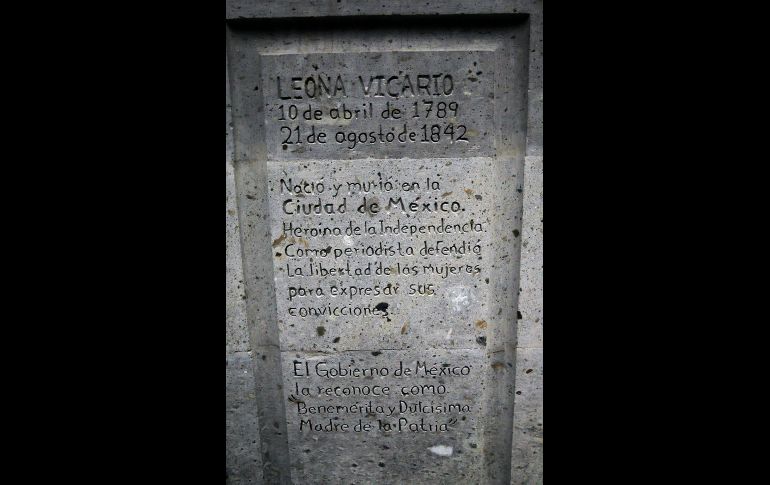 LEONA VICARIO
10 de abril de 1789
21 de agosto de 1842
Nació y murió en la
Ciudad de México.
Heroina de la Independencia.
Como periodista defendió
La libertad de las mujeres
para expresar sus
convicciones.
El Gobierno de México
la reconoce como
"Benemérita y Dulcisima
Madre de la Patria"